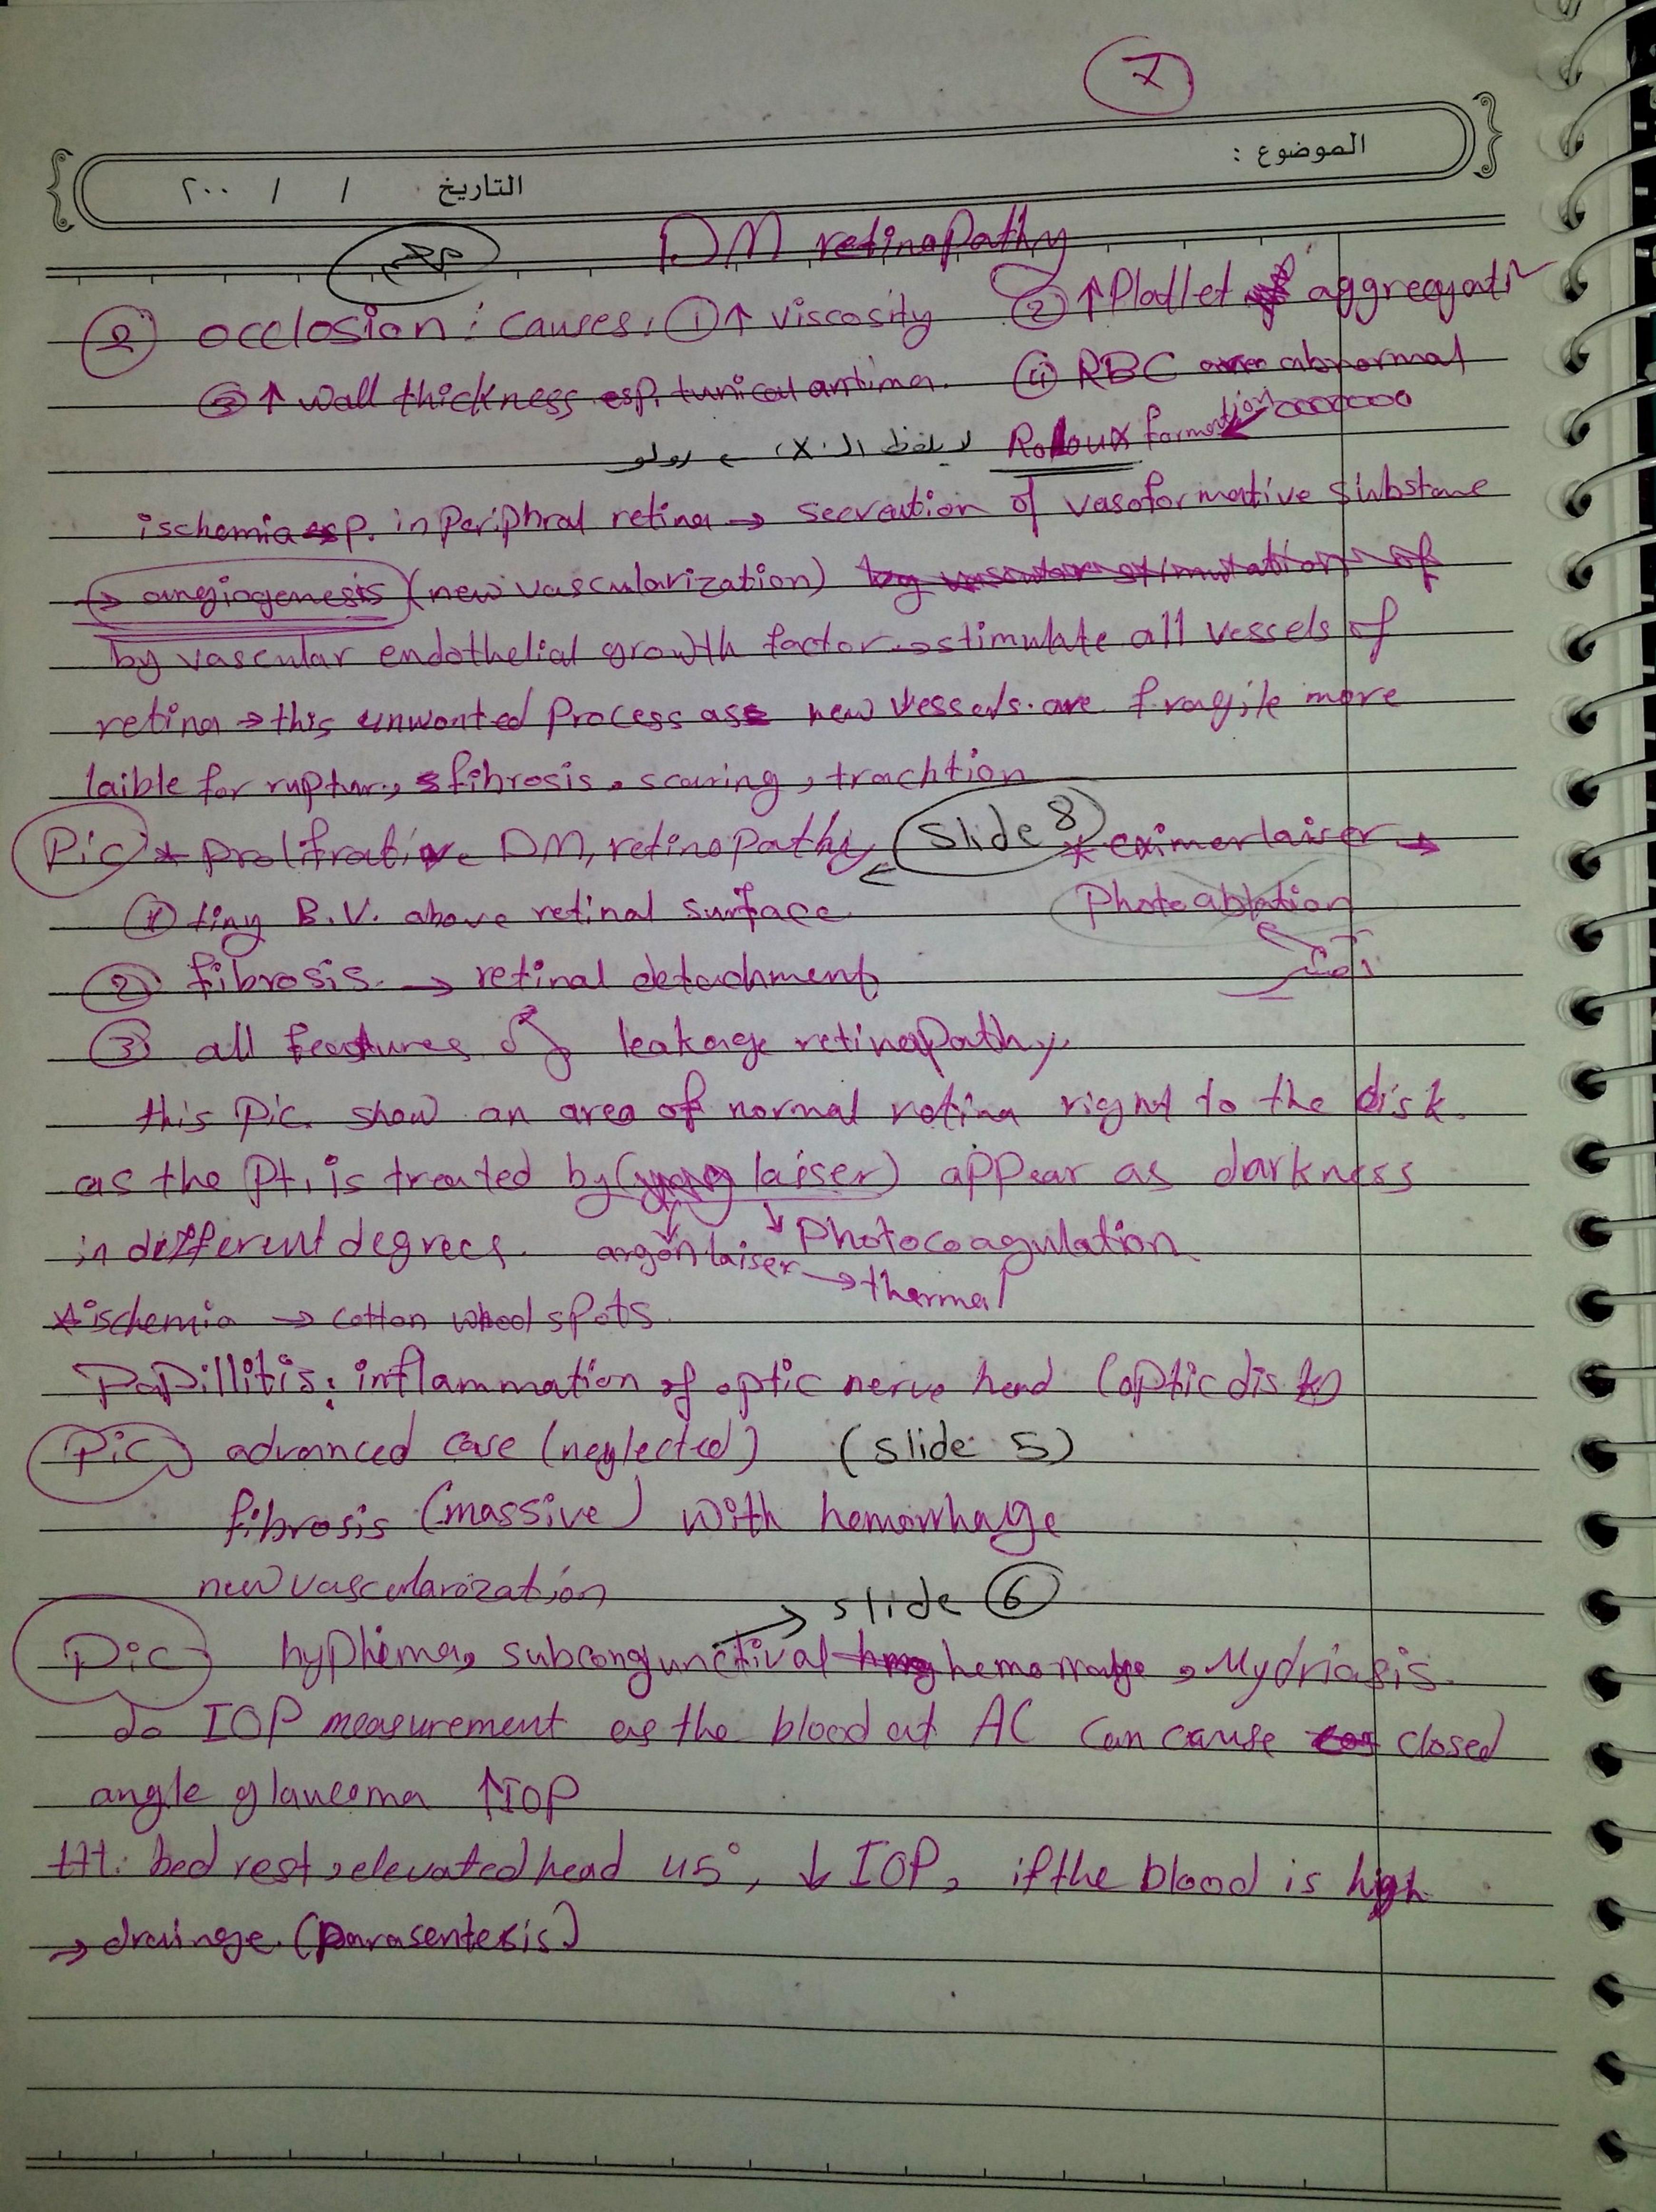 7
الموضوع :
التاريخ / / ٢٠٠
DM retinopathy
مهم
② occlosion: causes: ① ↑ viscosity ② ↑ Platlet aggregation
③ ↑ wall thickness esp. tunica intima. ④ RBC abnormal
Roloux formation لا يلفظ الـ X، ← رولو
ischemia esp. in periphral retina → secreation of vasoformative substane
→ angiogenesis (new vascularization)
by vascular endothelial growth factor → stimulate all vessels of
retina → this unwanted process as new vessels are fragile more
laible for ruptur, fibrosis, scaring, trachtion
Pic * prolifrative DM, retinopathy ← slide 8 * eximer laiser →
① tiny B.V. above retinal surface Photoablation
② fibrosis → retinal detachment
③ all features of leakage retinopathy.
this pic. show an area of normal retina right to the disk.
as the pt. is treated by ( laiser) appear as darkness
in different degrees. argon laiser → thermal ↓ Photocoagulation
* ischemia → cotton whool spots.
Papillitis: inflammation of optic nerve head (optic disk)
Pic advanced case (neglected) (slide 5)
fibrosis (massive) with hemorrhage
new vascularization
→ slide ⑥
Pic hyphema, subconjunctival hemorrhage, Mydriasis.
do IOP measurement as the blood at AC can cause closed
angle glaucoma ↑IOP
ttt: bed rest, elevated head 45°, ↓ IOP, if the blood is high
→ drainge. (parasentesis)